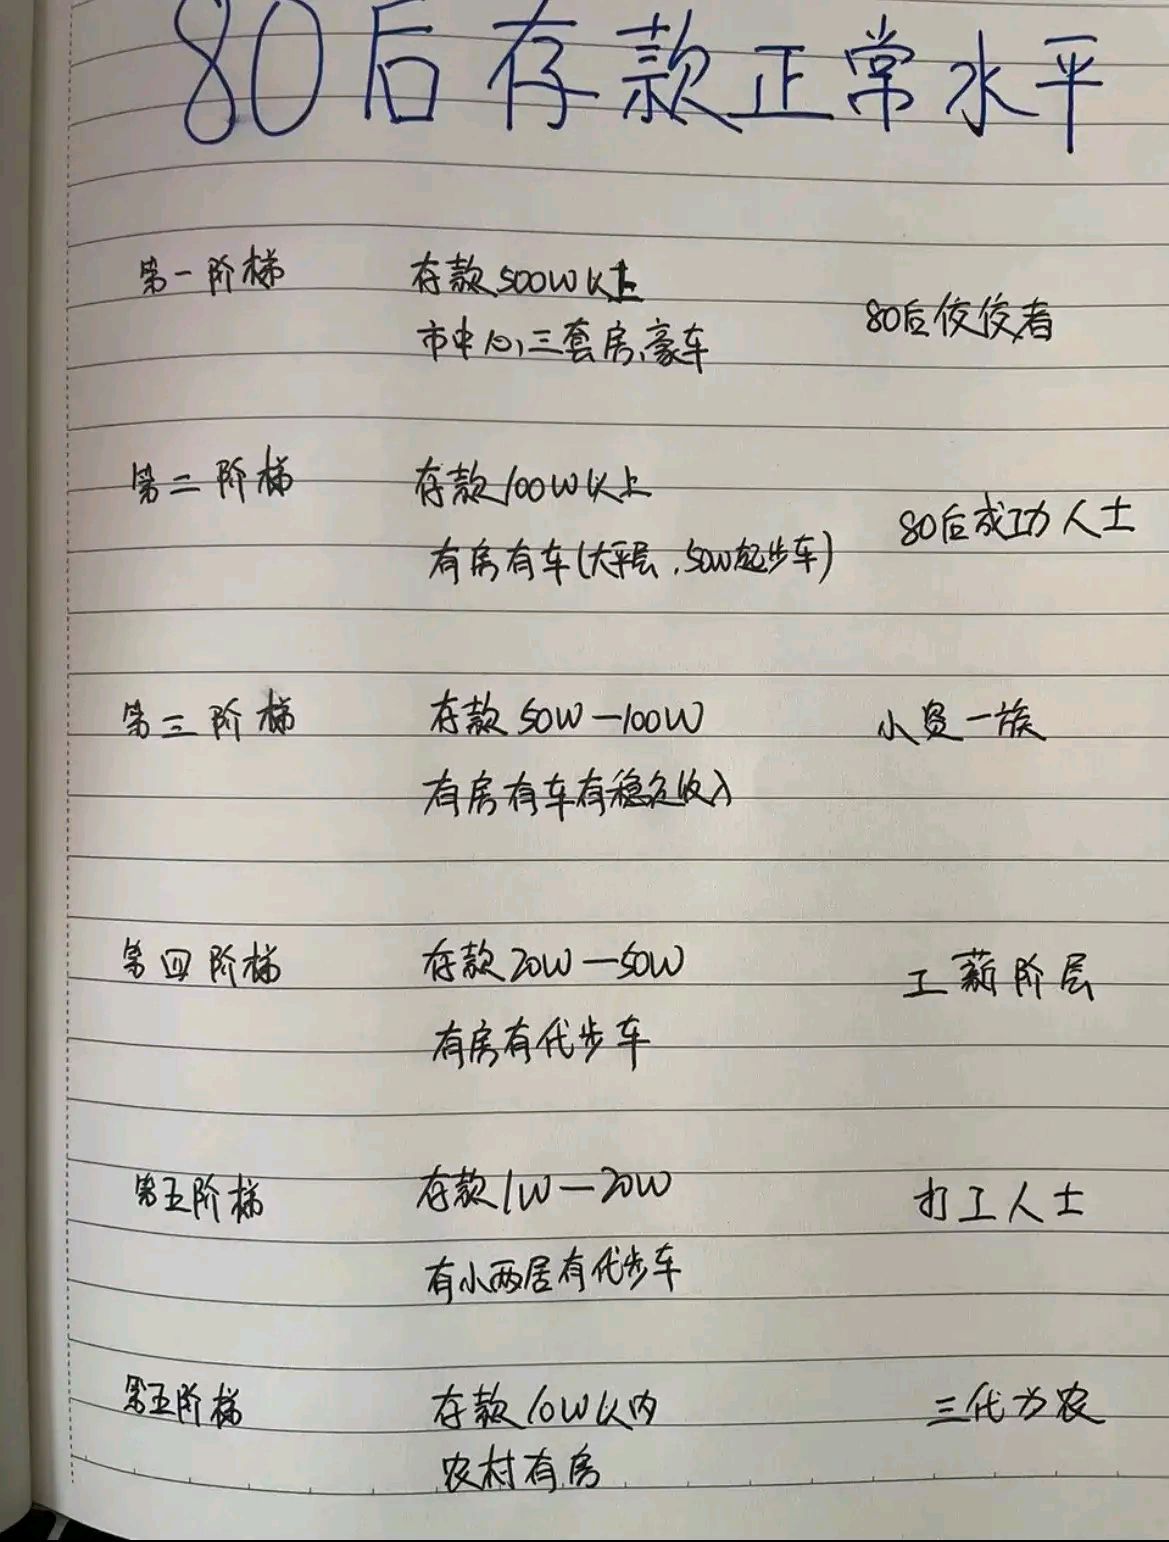 80后存款正常水平
第一阶梯 存款500W以上
市中心,三套房、豪车 80后佼佼者
第二阶梯 存款100W以上
有房有车(大平层、50W起步车) 80后成功人士
第三阶梯 存款50W—100W 小资一族
有房有车有稳定收入
第四阶梯 存款20W—50W 工薪阶层
有房有代步车
第五阶梯 存款1W—20W 打工人士
有小两居有代步车
第五阶梯 存款10W以内 三代为农
农村有房